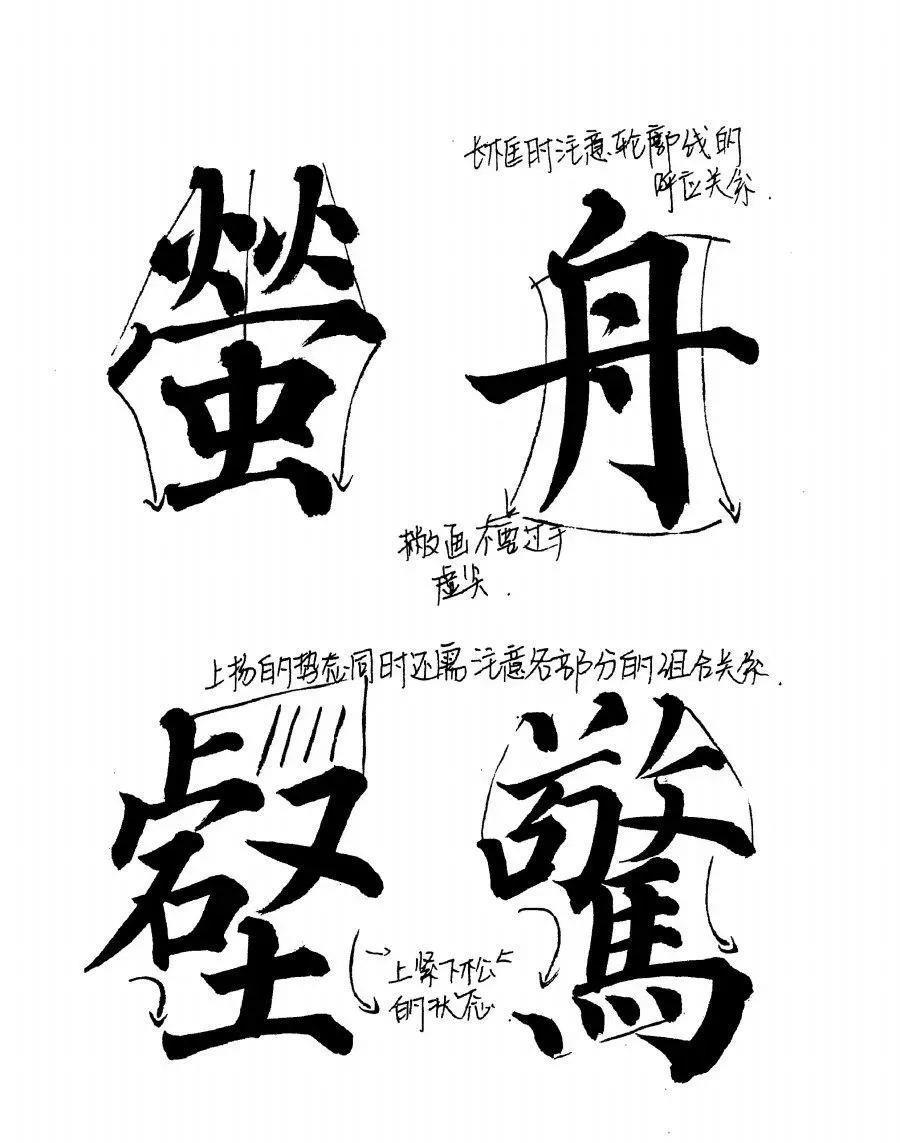 长框时注意轮廓线的
呼应关系.
螢舟
撇画不要过于
虚尖.
上扬的势态同时还需注意各部分的组合关系.
壑驚
上紧下松
的状态.